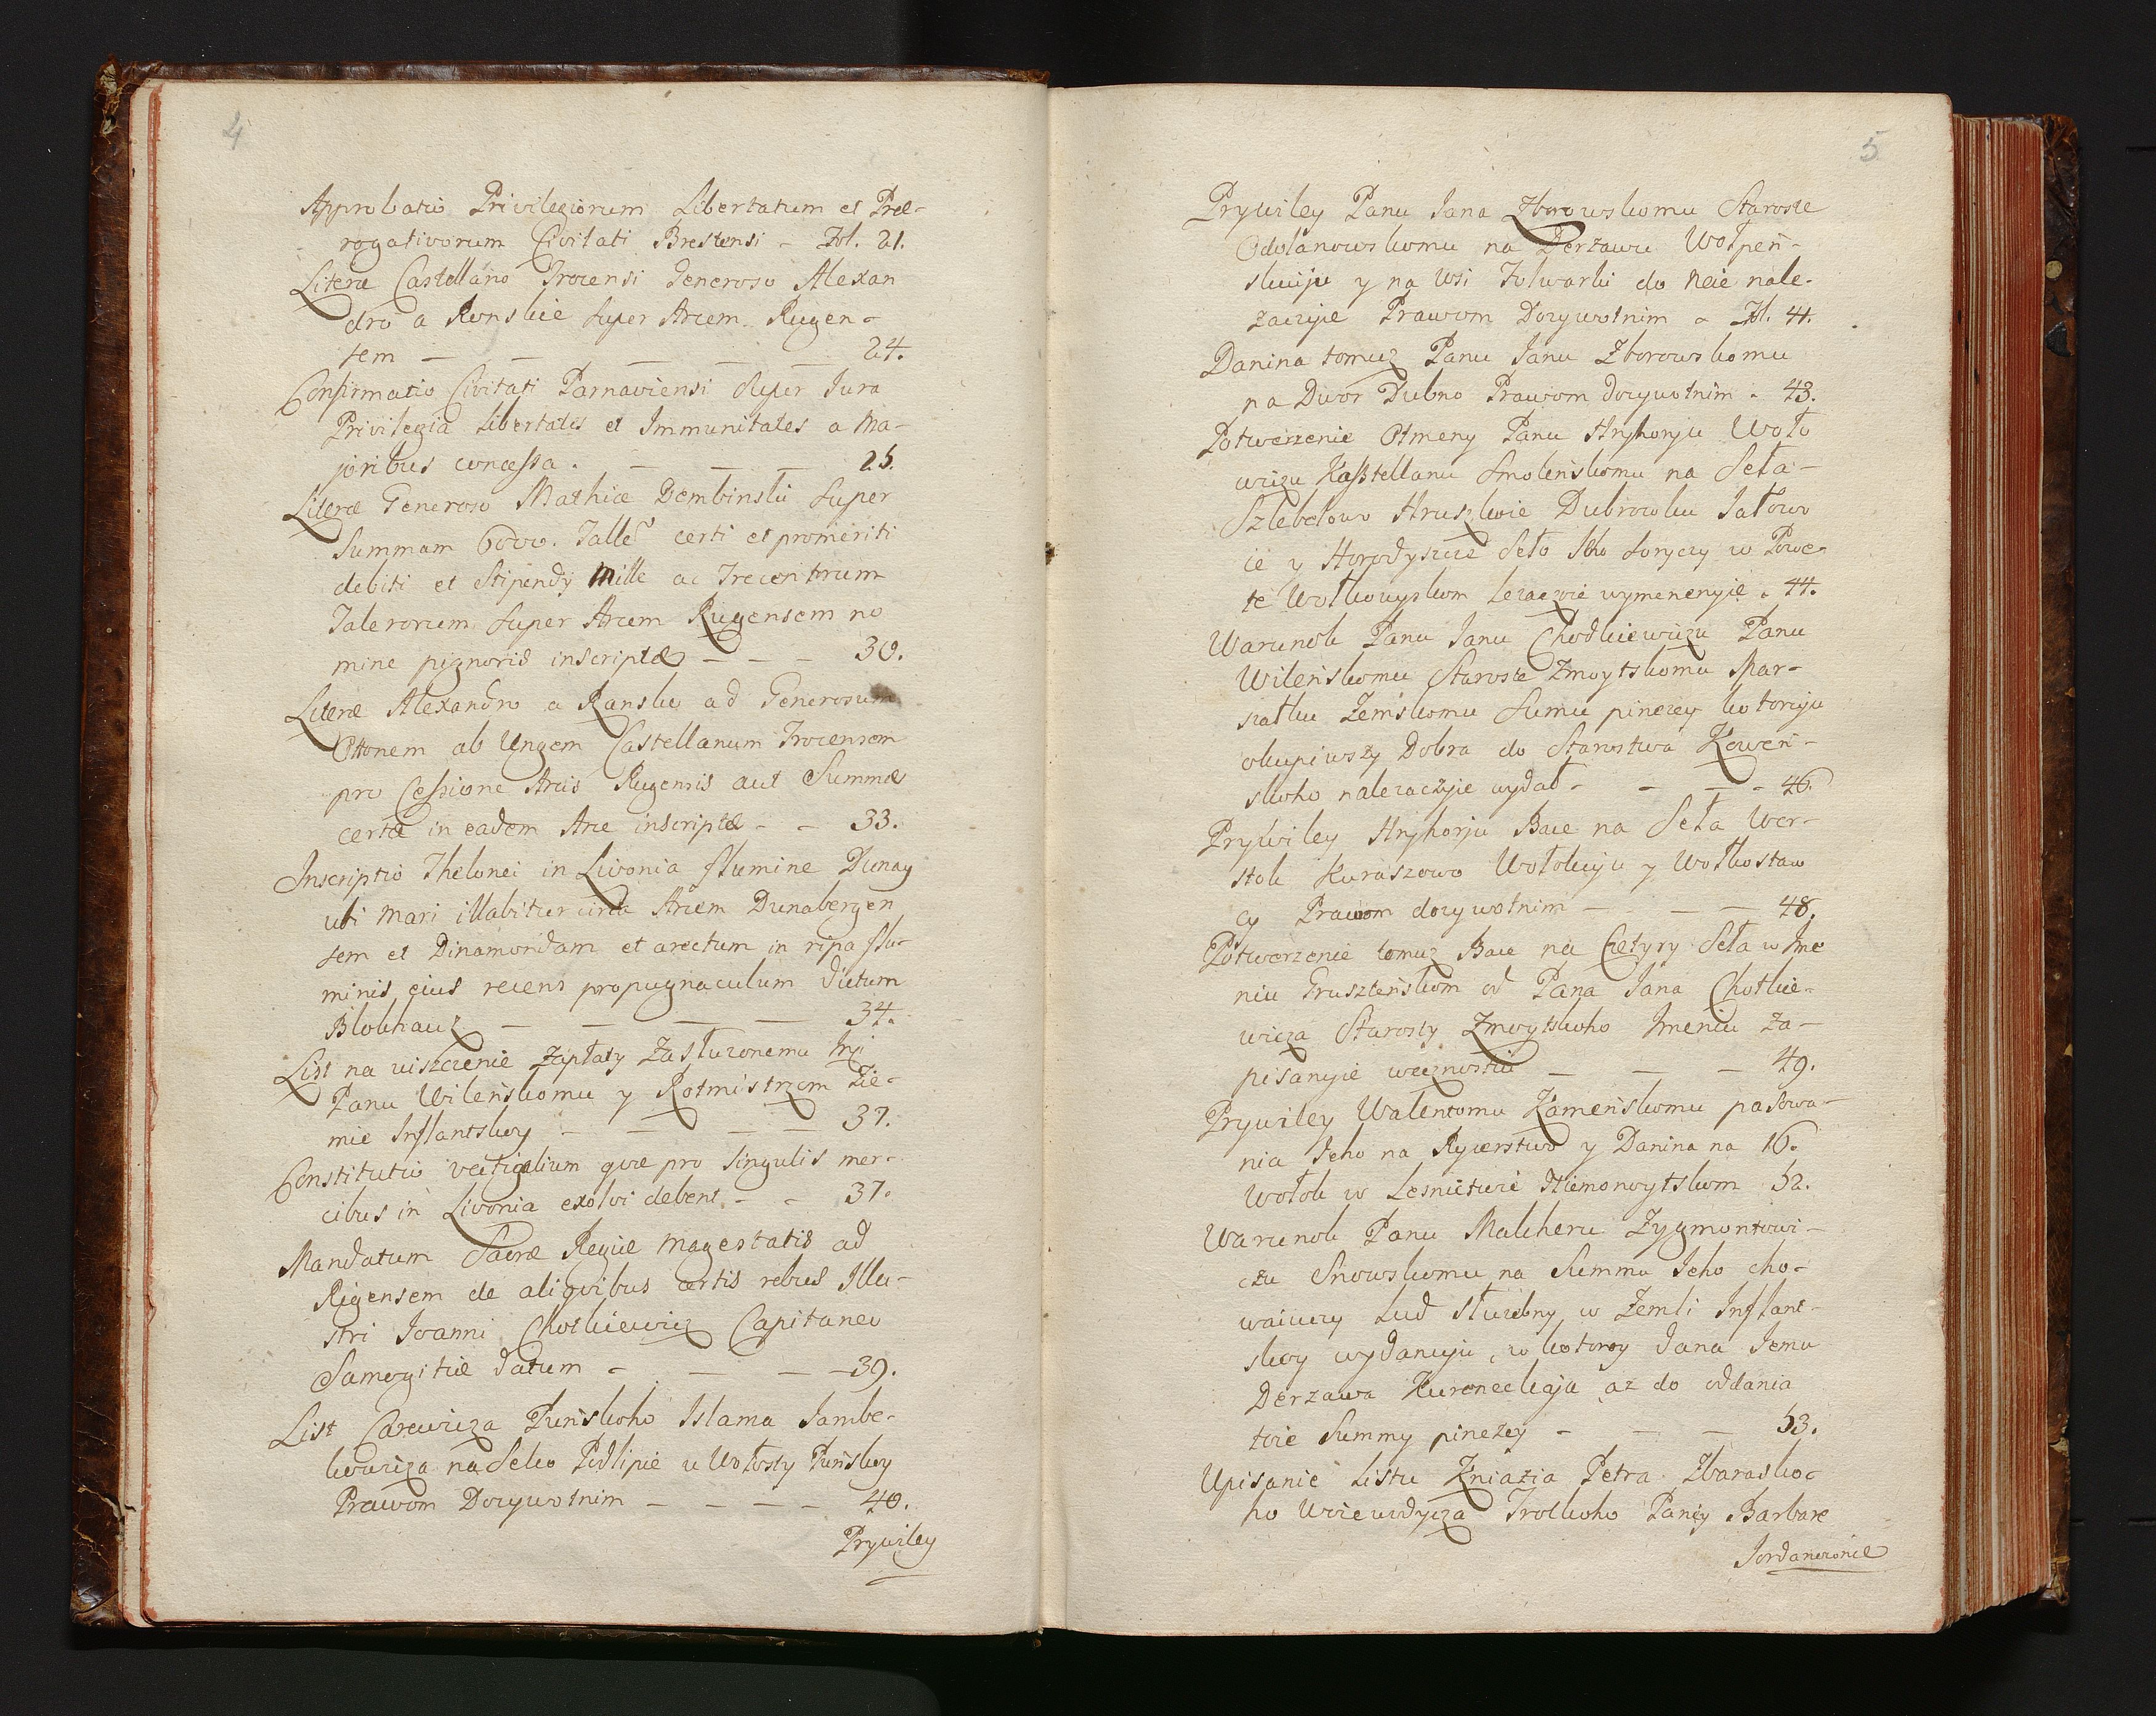 4
Approbatio Privilegiorum Libertatum et Præ-
rogativorum Civitati Brestensi - Fol. 21.
Literæ Castellano Trocensi Generoso Alexan
dro a Ronskie super Arcem Rugen-
sem — — — — 24.
Confirmatio Civitati Parnaviensi super Jura
Privilegia libertates et Immunitates a Ma-
joribus concessa. — — — 25.
Literæ Generoso Mathiæ Dembinski super
Summam 6000. Talle͂ certi et promeriti
debiti et Stipendy Mille ac Trecentorum
Talerorum super Arcem Rugensem no
mine pignoris inscriptæ — — — 30.
Literæ Alexandro a Ransko ad Generosum
Ottonem ab Ungem Castellanum Trocensem
pro Cessione Arcis Rugensis aut Summæ
certæ in eadem Arce inscriptæ - - 33.
Inscriptio Thelonei in Livonia flumine Dunay
ubi mari illabitur circa Arcem Dunabergen
sem et Dinamondam et arectum in ripa flu-
minis ejus recens propugnaculum dictum
Blokhauz — — — — 34.
List na uiszczenie Zapłaty Zasłuzonemu
Panu Wilenskomu y Rotmistrzom Zie-
mie Inflantskoy — — — — 37.
Constitutio vectigalium quæ pro singulis mer-
cibus in Livonia exolvi debent - - 37.
Mandatum Sacræ Regiæ Magestatis ad
Rigensem de aliquibus certis rebus Illu-
stri Joanni Chotkiewicz Capitaneo
Samogitiæ datum - — — — 39.
List Carewicza Punskoho Islama Jambe-
kowicza na Selco Pidlipie u Wołosty Punskoy
Prawom Dozywotnim — — — — 40.
Prywiley
5
Prywiley Panu Jana Zborowskomu Staroste
Odolanowskomu na Derzawu Wołpeń-
skuiju y na Wsi Folwarki do neie nale-
zaczyie Prawom Dozywotnim - Fol. 41.
Danina tomuz Panu Janu Zborowskomu
na Dwor Dubno Prawom dozywotnim - 43.
Potwerzenie Otmeny Panu Hryhorju Woło
wiczu Kasztellanu Smolenskomu na Seła-
Szlebelowo Hruszkoie Dubrowku Jałowo
ie y Horodyszcze Seło Soryczy w Powe-
te Wołkowyskom lezaczoie wymenenyie . 44.
Warunok Panu Janu Chodkiewiczu Panu
Wilenskomu Staroste Zmoytskomu Mar-
szałku Zemskomu Sumu pinezey kotoruju
okupiwszy Dobra do Starostwa Kowen-
skoho nalezaczyie wydał - - — - 46.
Prywiley Hryhorju Bace na Seła Wer-
stok Kuraszowo Wołokuju y Wołkostaw
cy Prawom dozywotnim — — — 48.
Potwerzenie tomuz Bace na Czetyry Seła w Ime
niu Gruszlenskom od Pana Jana Chotkie-
wicza Starosty Zmoytskoho Imeniu za-
pisanyie wecznostiu — — — 49.
Prywiley Walentomu Kamenskomu pasowa-
nia Jeho na Rycerstwo y Danina na 16.
Wołok w Lesnictwie Niemonoytskom 52.
Warunok Panu Malcheru Zygmontowi-
czu Snowskomu na Summu Jeho cho-
waiuczy Lud słuzebny w Zemli Inflant-
skoy wydanuju, w kotoroy dana Jemu
Derzawa Kureneckaja az do oddania
toie Summy pinezey - — — 53.
Upisanie Listu Kniazia Petra Zbarasko-
ho Woiewodycza Trockoho Paniey Barbare
Jordanownie